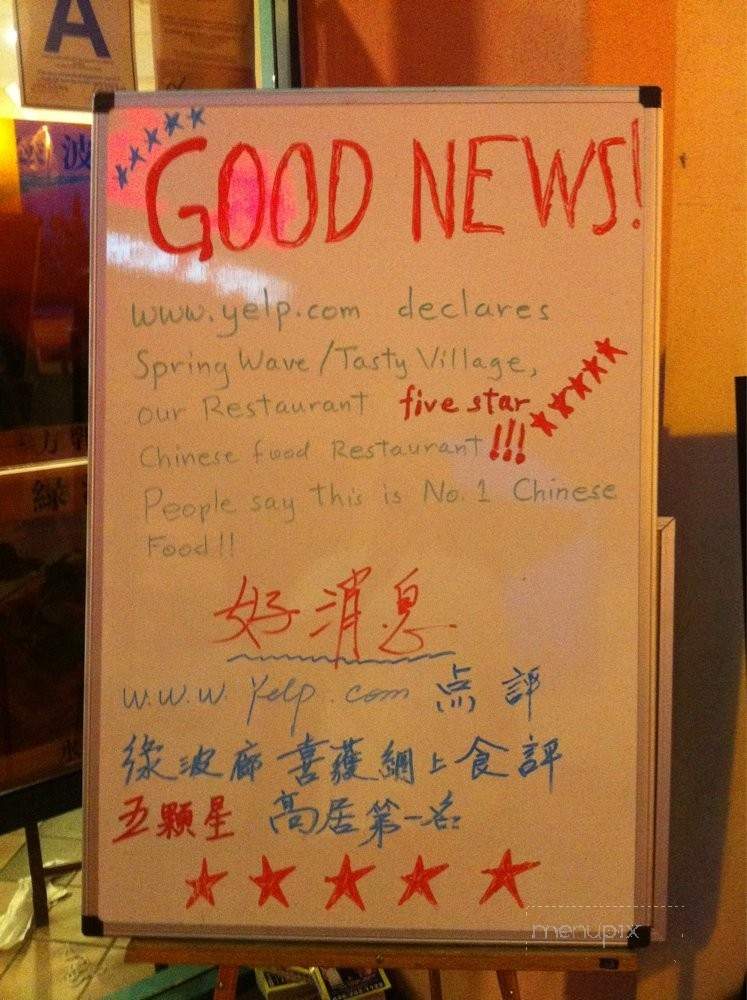 A
波
GOOD NEWS!
www.yelp.com declares
Spring Wave/Tasty Village,
our Restaurant five star
Chinese food Restaurant!!!
People say this is No.1 Chinese
Food!!
好消息
w.w.w.Yelp.com 点評
綠波廊喜獲網上食評
五顆星 高居第一名
menupix